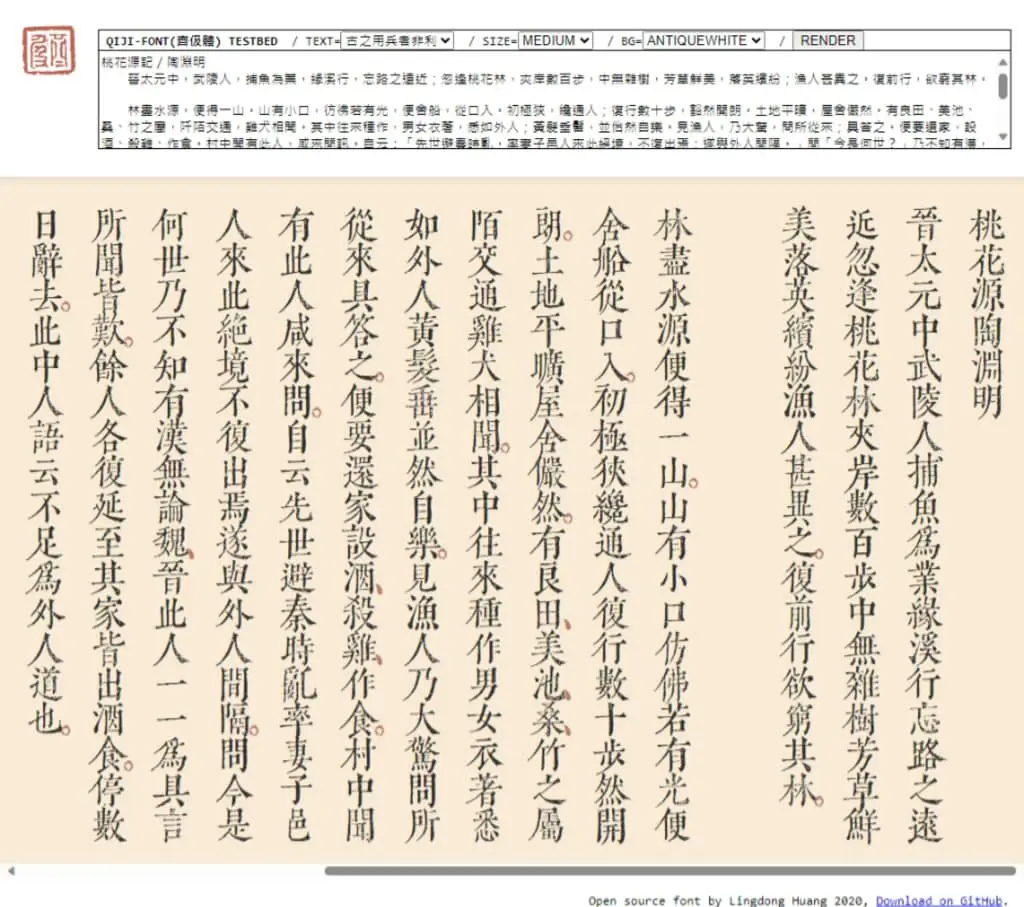 QIJI-FONT(齊伋體) TESTBED / TEXT=古之用兵者非利 / SIZE=MEDIUM / BG=ANTIQUEWHITE / RENDER
桃花源記 / 陶淵明
晉太元中，武陵人，捕魚為業，緣溪行，忘路之遠近；忽逢桃花林，夾岸數百步，中無雜樹，芳草鮮美，落英繽紛；漁人甚異之。復前行，欲窮其林。
林盡水源，便得一山。山有小口，彷彿若有光，便舍船，從口入。初極狹，纔通人；復行數十步，豁然開朗。土地平曠，屋舍儼然。有良田、美池、
桑、竹之屬，阡陌交通，雞犬相聞。其中往來種作，男女衣著，悉如外人；黃髮垂髫，並怡然自樂。見漁人，乃大驚，問所從來；具答之。便要還家，設
酒、殺雞、作食。村中聞有此人，咸來問訊。自云：「先世避秦時亂，率妻子邑人來此絕境，不復出焉；遂與外人間隔。」問「今是何世？」乃不知有漢，
桃花源陶淵明
晉太元中武陵人捕魚爲業緣溪行忘路之遠
近忽逢桃花林夾岸數百步中無雜樹芳草鮮
美落英繽紛漁人甚異之。復前行欲窮其林。
林盡水源便得一山。山有小口仿佛若有光便
舍船從口入。初極狹纔通人復行數十步然開
朗。土地平曠屋舍儼然。有良田、美池、桑、竹之屬
陌交通雞犬相聞。其中往來種作男女衣著悉
如外人黃髮垂並然自樂。見漁人乃大驚問所
從來具答之。便要還家設酒、殺雞、作食。村中聞
有此人咸來問。自云先世避秦時亂率妻子邑
人來此絕境不復出焉遂與外人間隔。問今是
何世乃不知有漢無論魏、晉此人一一爲具言
所聞皆歎。餘人各復延至其家皆出酒食。停數
日辭去。此中人語云不足爲外人道也。
Open source font by Lingdong Huang 2020, Download on GitHub.